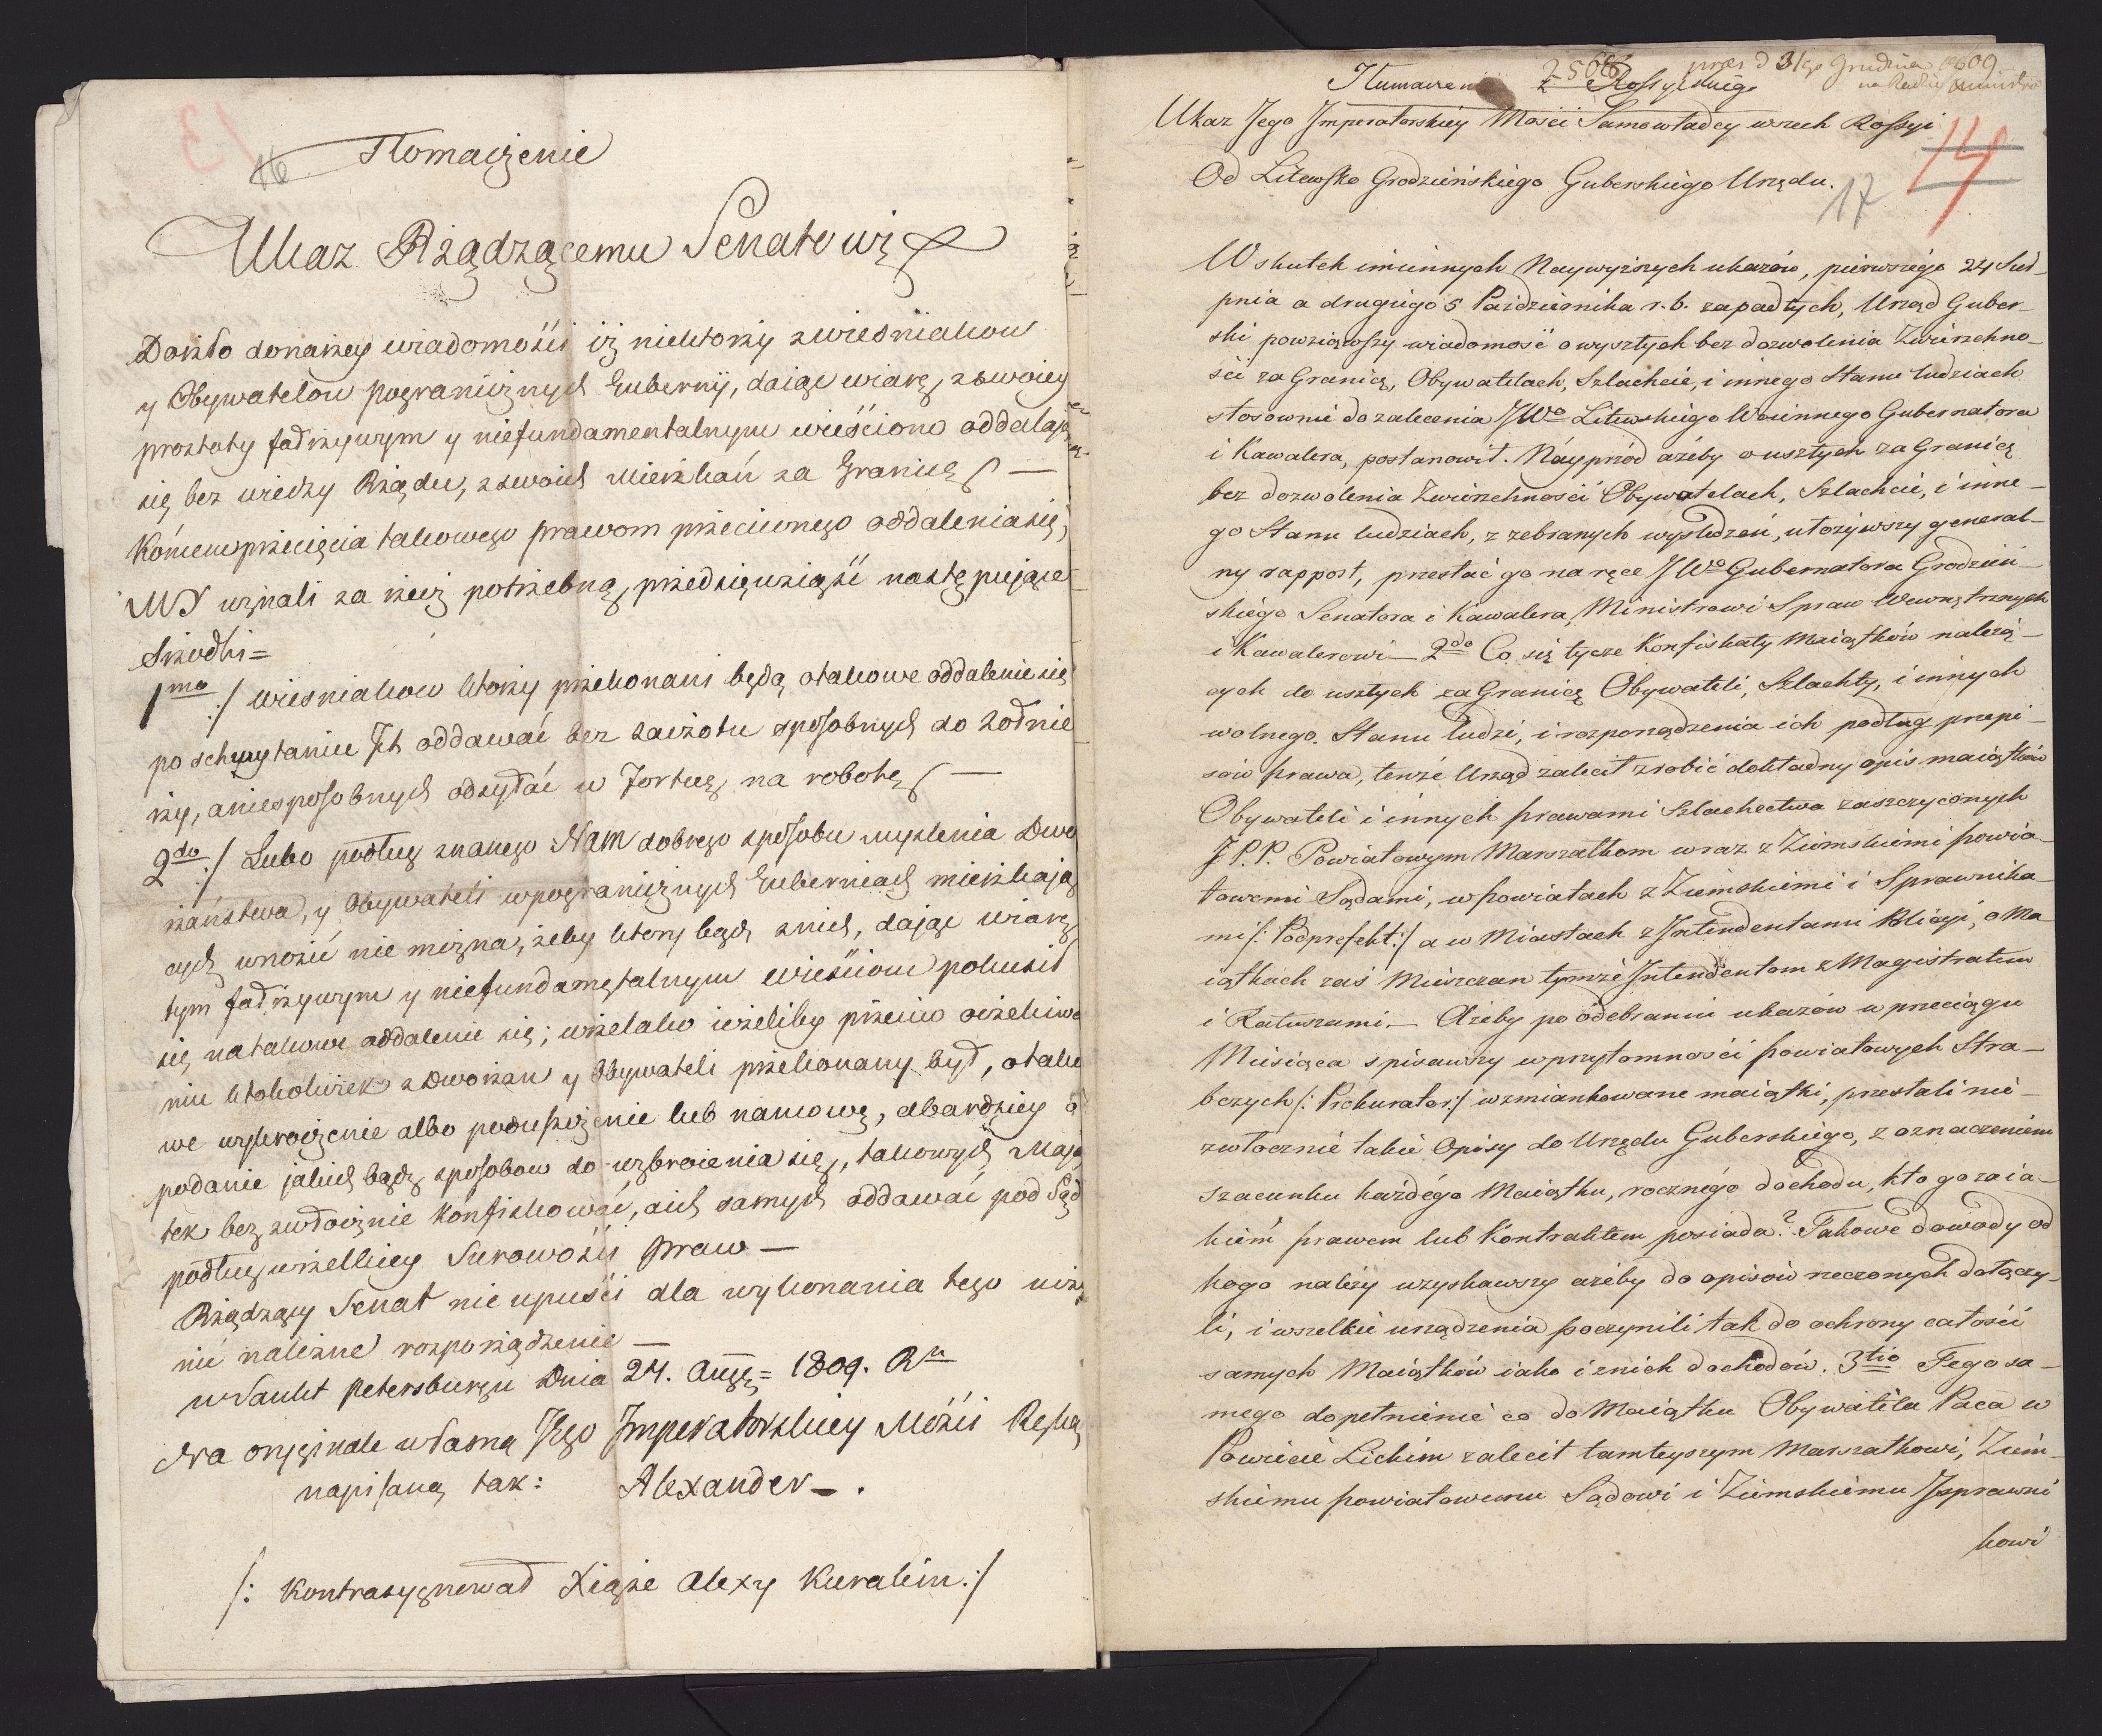 16
13
Tłomaczenie
Ukaz Rządzącemu Senatowi
Doszło do naszey wiadomości iż niektorzy z wiesniakow
y Obywatelow pogranicznych Gubernij, daiąc wiarę z swoiey
prostoty fałszywym y niefundamentalnym wieściom oddalają
się bez wiedzy Rządu, z swoich Mieszkań za Granicę —
Końcem przecięcia takowego prawom przeciwnego oddalenia się,
MY uznali za rzecz potrzebną, przedsięwziąść następujące
Srzodki =
1mo :/ wiesniakow ktorzy przekonani będą o takowe oddalenie się
po schwytaniu Ich oddawać bez zaczotu sposobnych do Żołnie
rzy, a niesposobnych odsyłać w Fortecę na robotę —
2do :/ Lubo podług znanego Nam dobrego sposobu myslenia Dwo
rzaństwa, y Obywateli w pogranicznych Guberniach mieszkają
cych wnosić nie można, żeby ktory bądź z nich, dając wiarę
tym fałszywym y niefundamętalnym wieściom pokusił
się na takowe oddalenie się; wszelako ieżeliby przeciw oczekiwa
niu ktokolwiek z Dworzan y Obywateli przekonany był, o tako
we wykroczenie albo poduszczenie lub namowę, a bardziey o
podanie jakich bądź sposobow do wykroczenia się, takowych Mają
tek bez zwłocznie konfiskować, a ich samych oddawać pod Sąd
podług wszelkiey Surowości Praw —
Rządzący Senat nie upuści dla wykonania tego uczy
nić należne rozporządzenie —
w Sankt Petersburgu Dnia 24. Augę = 1809. Ru
Na oryginale własną Jego Imperatorskiey Mości Ręką
napisaną tak: Alexander —.
/: Kontrasygnował Xiąże Alexy Kurakin :/
2508 prez d 31go Grudnia 1809
Tłumaczen z Rossyiskiego
Ukaz Jego Imperatorskiey Mości Samowładcy wszech Rossyi
14
Od Litewsko Grodzieńskiego Guberskiego Urzędu.
17
W skutek imiennych Naywyższych ukazów, pierwszégo 24 Sier-
pnia a drugiégo 5 Październiku r. b. zapadłych, Urząd Guber-
ski powziąwszy wiadomość o wyszłych bez dozwolenia Zwierzchno-
ści za Granicę, Obywatelach, Szlachcie, i innego Stanu ludziach
stosownie do zalecenia JWo Litewskiégo Woiennego Gubernatora
i Kawalera, postanowił. Náyprzód ażéby o uszłych za Granicę
bez dozwolenia Zwierzchności Obywatelach, Szlachcie, i inne-
go Stanu ludziach, z zebranych wysledzeń, ułożywszy general-
ny rapport, przesłać go na ręce JWo Gubernatora Grodzień-
skiégo Senatora i Kawalera, Ministrowi Spraw Wewnętrznych
i Kawalerowi — 2do Co się tycze Konfiskaty Maiątków należą-
cych do uszłych za Granicę Obywateli, Szlachty, i innych
wolnego Stanu ludzi, i rozporządzenia ich podług przepi-
sów prawa, tenże Urząd zalecił zrobić dokładny opis maiątków
Obywateli i innych prawami Szlachectwa zaszczyconych
J P.P. Powiatowym Marszałkom wraz z Ziemskiemi powia-
towemi Sądami, w powiatach z Ziemskiemi i Sprawnika-
mi /: Podprefekt :/ a w Miastach z Intendentami Policyi, o Ma-
iątkach zaś Mieszczan tymże Intendentom z Magistratem
i Ratuszami. — Ażeby po odebraniu ukazów w przeciągu
Miesiąca spisawszy w przytomności powiatowych Stra-
bczych /: Prokurator :/ wzmiankowane maiątki, przesłali nie-
zwłocznie takie Opisy do Urzędu Guberskiego, z oznaczeniem
szacunku każdégo Maiątku, rocznégo dochodu, kto go za ia-
kiém prawem lub Kontraktem posiada? Takowe dowody od
kogo należy uzyskawszy ażéby do opisów rzeczonych dołączy-
li, i wszelkie urządzenia poczynili tak do ochrony całości
samych Maiątków iako i z nich dochodów. 3tio Tego sa-
mego dopełnienie co do Maiątku Obywatela Paca w
Powiecie Lidzkim zalecił tamteyszym Marszałkowi, Ziem-
skiemu powiatowemu Sądowi i Ziemskiemu Isprawni
kowi